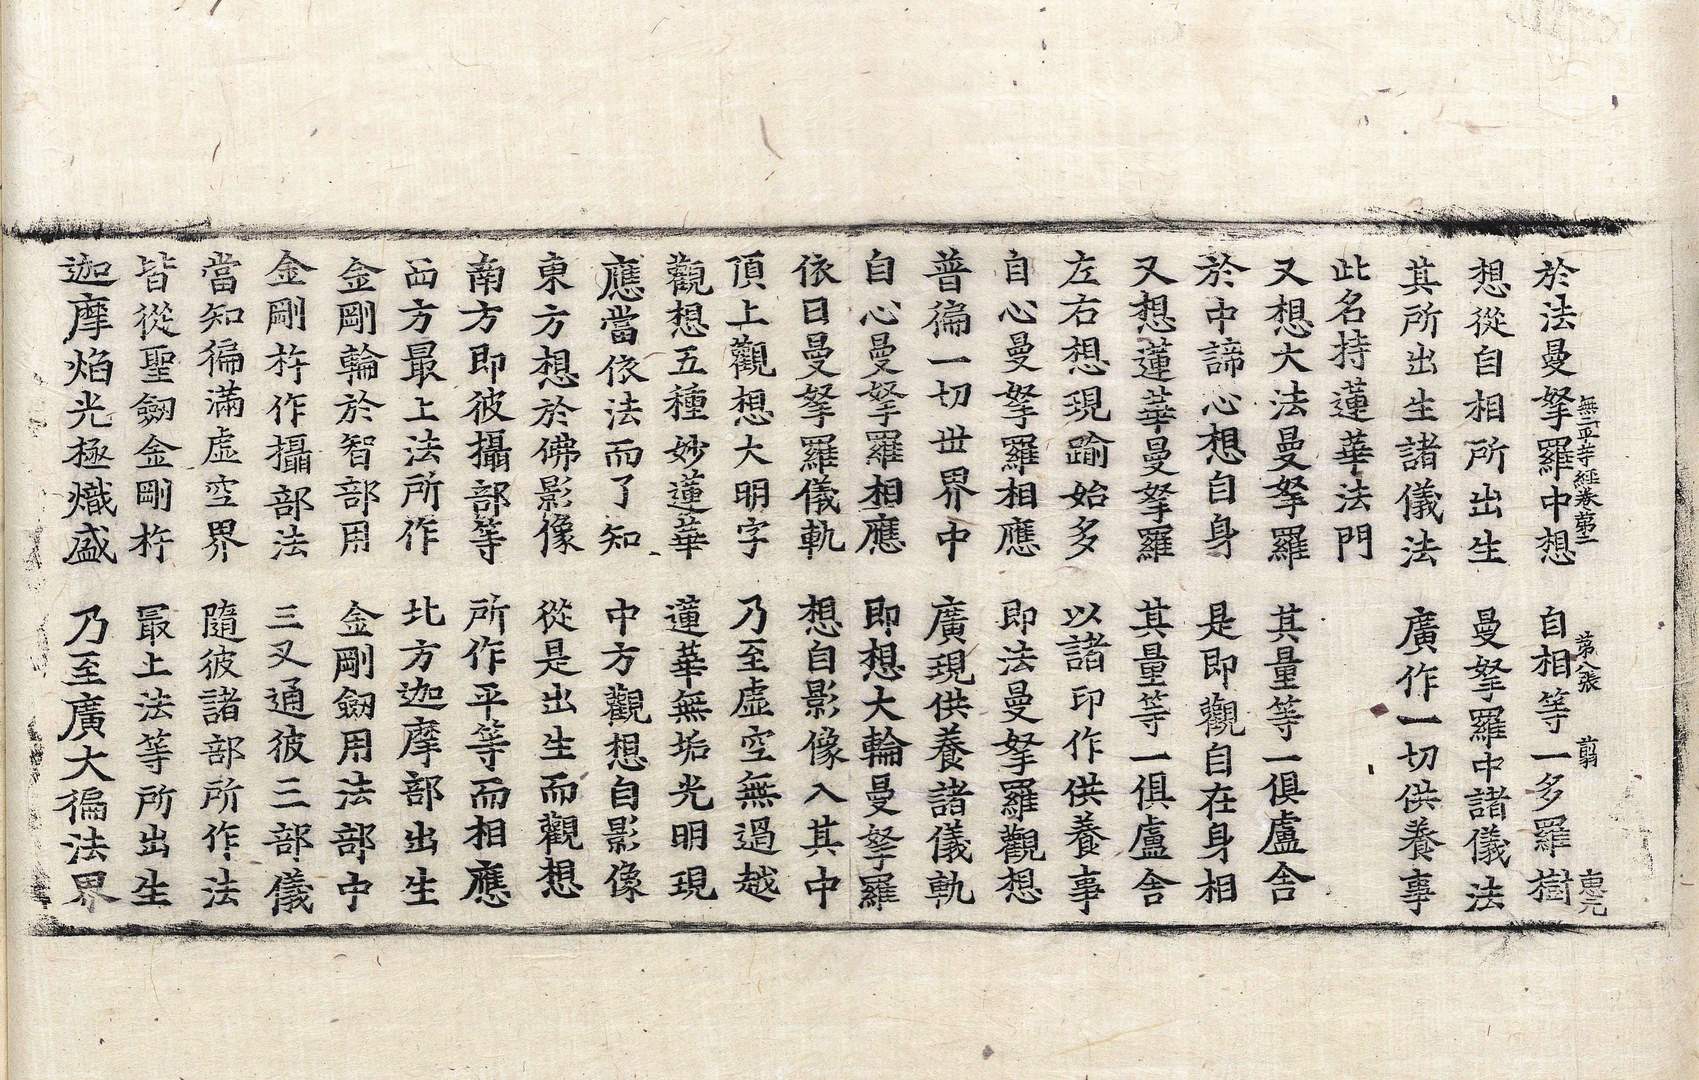 無二平等經卷第二 第八張 翦 惠元
於法曼拏羅中想 自相等一多羅樹
想從自相所出生 曼拏羅中諸儀法
其所出生諸儀法 廣作一切供養事
此名持蓮華法門
又想大法曼拏羅 其量等一俱盧舍
於中諦心想自身 是即觀自在身相
又想蓮華曼拏羅 其量等一俱盧舍
左右想現踰始多 以諸印作供養事
自心曼拏羅相應 即法曼拏羅觀想
普徧一切世界中 廣現供養諸儀軌
自心曼拏羅相應 即想大輪曼拏羅
依日曼拏羅儀軌 想自影像入其中
頂上觀想大明字 乃至虛空無過越
觀想五種妙蓮華 蓮華無垢光明現
應當依法而了知 中方觀想自影像
東方想於佛影像 從是出生而觀想
南方即彼攝部等 所作平等而相應
西方最上法所作 北方迦摩部出生
金剛輪於智部用 金剛劒用法部中
金剛杵作攝部法 三叉通彼三部儀
當知徧滿虛空界 隨彼諸部所作法
皆從聖劒金剛杵 最上法等所出生
迦摩焰光極熾盛 乃至廣大徧法界